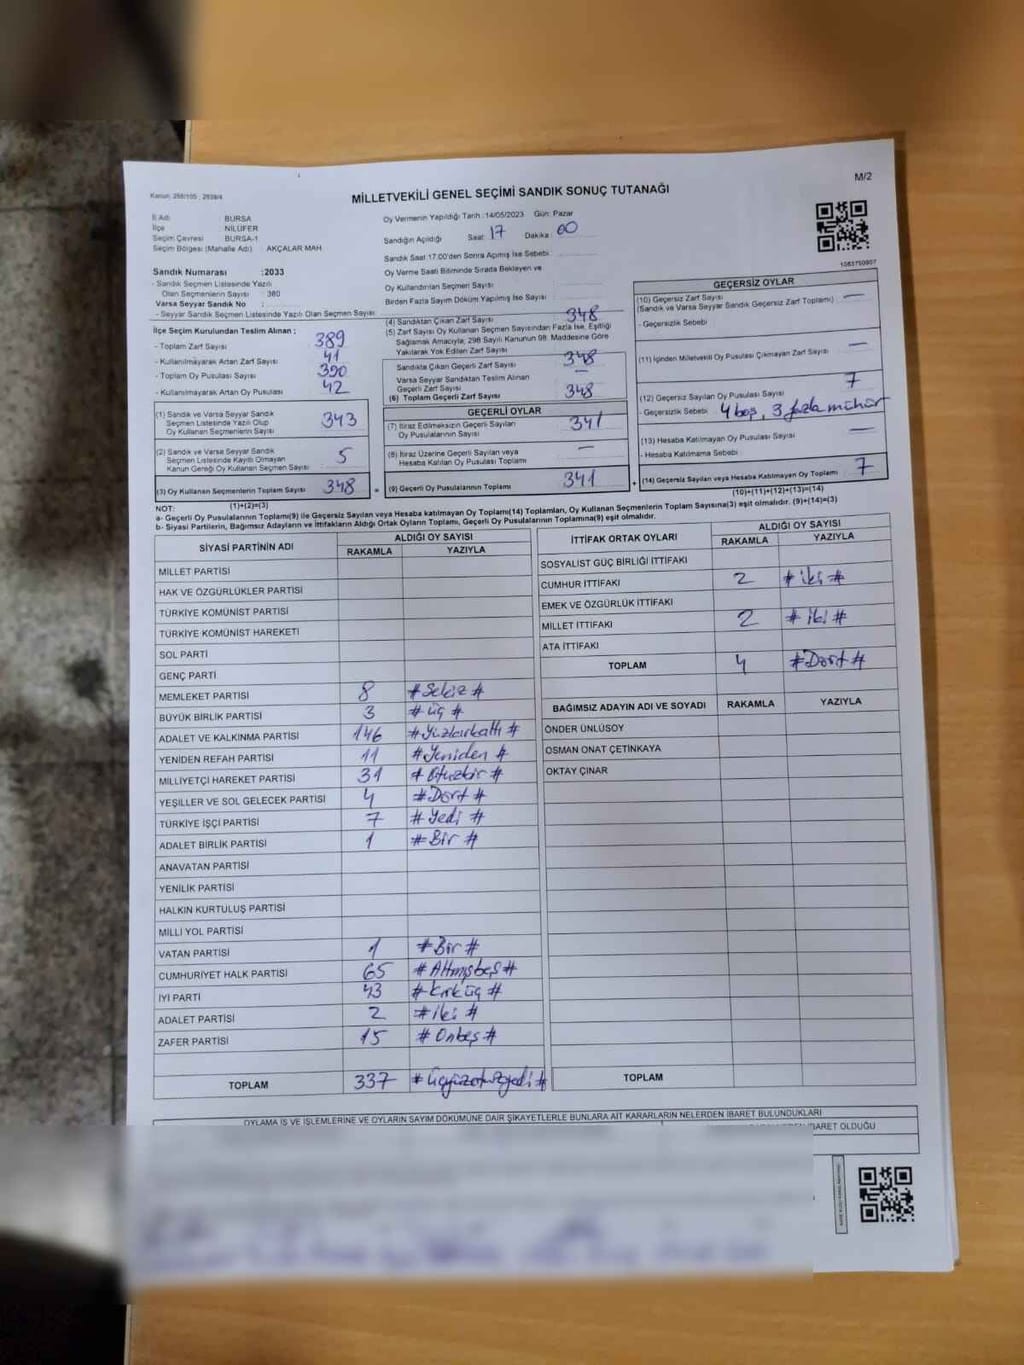 Kanun: 298/105 ; 2839/4
MİLLETVEKİLİ GENEL SEÇİMİ SANDIK SONUÇ TUTANAĞI
M/2
İl Adı BURSA
İlçe NİLÜFER
Seçim Çevresi BURSA-1
Seçim Bölgesi (Mahalle Adı) : AKÇALAR MAH
Oy Vermenin Yapıldığı Tarih :14/05/2023 Gün: Pazar
Sandığın Açıldığı Saat: 17 Dakika: 00
Sandık Saat 17.00'den Sonra Açılmış İse Sebebi :
Oy Verme Saati Bitiminde Sırada Bekleyen ve
Oy Kullandırılan Seçmen Sayısı
Birden Fazla Sayım Döküm Yapılmış İse Sayısı
Sandık Numarası :2033
- Sandık Seçmen Listesinde Yazılı
Olan Seçmenlerin Sayısı : 380
Varsa Seyyar Sandık No :
- Seyyar Sandık Seçmen Listesinde Yazılı Olan Seçmen Sayısı
İlçe Seçim Kurulundan Teslim Alınan ;
- Toplam Zarf Sayısı : 389
- Kullanılmayarak Artan Zarf Sayısı : 41
- Toplam Oy Pusulası Sayısı : 390
- Kullanılmayarak Artan Oy Pusulası : 42
(1) Sandık ve Varsa Seyyar Sandık
Seçmen Listesinde Yazılı Olup
Oy Kullanan Seçmenlerin Sayısı 343
(2) Sandık ve Varsa Seyyar Sandık
Seçmen Listesinde Kayıtlı Olmayan
Kanun Gereği Oy Kullanan Seçmen Sayısı 5
(3) Oy Kullanan Seçmenlerin Toplam Sayısı 348
(1)+(2)=(3)
(4) Sandıktan Çıkan Zarf Sayısı : 348
(5) Zarf Sayısı Oy Kullanan Seçmen Sayısından Fazla İse, Eşitliği
Sağlamak Amacıyla; 298 Sayılı Kanunun 98. Maddesine Göre
Yakılarak Yok Edilen Zarf Sayısı
Sandıkta Çıkan Geçerli Zarf Sayısı : 348
Varsa Seyyar Sandıktan Teslim Alınan
Geçerli Zarf Sayısı : —
(6) Toplam Geçerli Zarf Sayısı : 348
GEÇERLİ OYLAR
(7) İtiraz Edilmeksizin Geçerli Sayılan
Oy Pusulalarının Sayısı 341
(8) İtiraz Üzerine Geçerli Sayılan veya
Hesaba Katılan Oy Pusulası Toplamı —
= (9) Geçerli Oy Pusulalarının Toplamı 341
1083750907
GEÇERSİZ OYLAR
(10) Geçersiz Zarf Sayısı —
(Sandık ve Varsa Seyyar Sandık Geçersiz Zarf Toplamı) :
- Geçersizlik Sebebi :
(11) İçinden Milletvekili Oy Pusulası Çıkmayan Zarf Sayısı : —
(12) Geçersiz Sayılan Oy Pusulası Sayısı : 7
- Geçersizlik Sebebi : 4 boş, 3 fazla mühür
(13) Hesaba Katılmayan Oy Pusulası Sayısı : —
- Hesaba Katılmama Sebebi
+ (14) Geçersiz Sayılan veya Hesaba Katılmayan Oy Toplamı 7
(10)+(11)+(12)+(13)=(14)
NOT:
a- Geçerli Oy Pusulalarının Toplamı(9) ile Geçersiz Sayılan veya Hesaba Katılmayan Oy Toplamı(14) Toplamları, Oy Kullanan Seçmenlerin Toplam Sayısına(3) eşit olmalıdır. (9)+(14)=(3)
b- Siyasi Partilerin, Bağımsız Adayların ve İttifakların Aldığı Ortak Oyların Toplamı, Geçerli Oy Pusulalarının Toplamına(9) eşit olmalıdır.
SİYASİ PARTİNİN ADI ALDIĞI OY SAYISI
RAKAMLA YAZIYLA
MİLLET PARTİSİ
HAK VE ÖZGÜRLÜKLER PARTİSİ
TÜRKİYE KOMÜNİST PARTİSİ
TÜRKİYE KOMÜNİST HAREKETİ
SOL PARTİ
GENÇ PARTİ
MEMLEKET PARTİSİ 8 #Sekiz#
BÜYÜK BİRLİK PARTİSİ 3 #üç#
ADALET VE KALKINMA PARTİSİ 146 #Yüzkırkaltı#
YENİDEN REFAH PARTİSİ 11 #Yeniden#
MİLLİYETÇİ HAREKET PARTİSİ 31 #Otuzbir#
YEŞİLLER VE SOL GELECEK PARTİSİ 4 #Dört#
TÜRKİYE İŞÇİ PARTİSİ 7 #Yedi#
ADALET BİRLİK PARTİSİ 1 #Bir#
ANAVATAN PARTİSİ
YENİLİK PARTİSİ
HALKIN KURTULUŞ PARTİSİ
MİLLİ YOL PARTİSİ
VATAN PARTİSİ 1 #Bir#
CUMHURİYET HALK PARTİSİ 65 #Altmışbeş#
İYİ PARTİ 43 #Kırküç#
ADALET PARTİSİ 2 #iki#
ZAFER PARTİSİ 15 #Onbeş#
TOPLAM 337 #üçyüzotuzyedi#
İTTİFAK ORTAK OYLARI ALDIĞI OY SAYISI
RAKAMLA YAZIYLA
SOSYALİST GÜÇ BİRLİĞİ İTTİFAKI
CUMHUR İTTİFAKI 2 #iki#
EMEK VE ÖZGÜRLÜK İTTİFAKI
MİLLET İTTİFAKI 2 #iki#
ATA İTTİFAKI
TOPLAM 4 #Dört#
BAĞIMSIZ ADAYIN ADI VE SOYADI RAKAMLA YAZIYLA
ÖNDER ÜNLÜSOY
OSMAN ONAT ÇETİNKAYA
OKTAY ÇINAR
TOPLAM
OYLAMA İŞ VE İŞLEMLERİNE VE OYLARIN SAYIM DÖKÜMÜNE DAİR ŞİKAYETLERLE BUNLARA AİT KARARLARIN NELERDEN İBARET BULUNDUKLARI
İBARET OLDUĞU